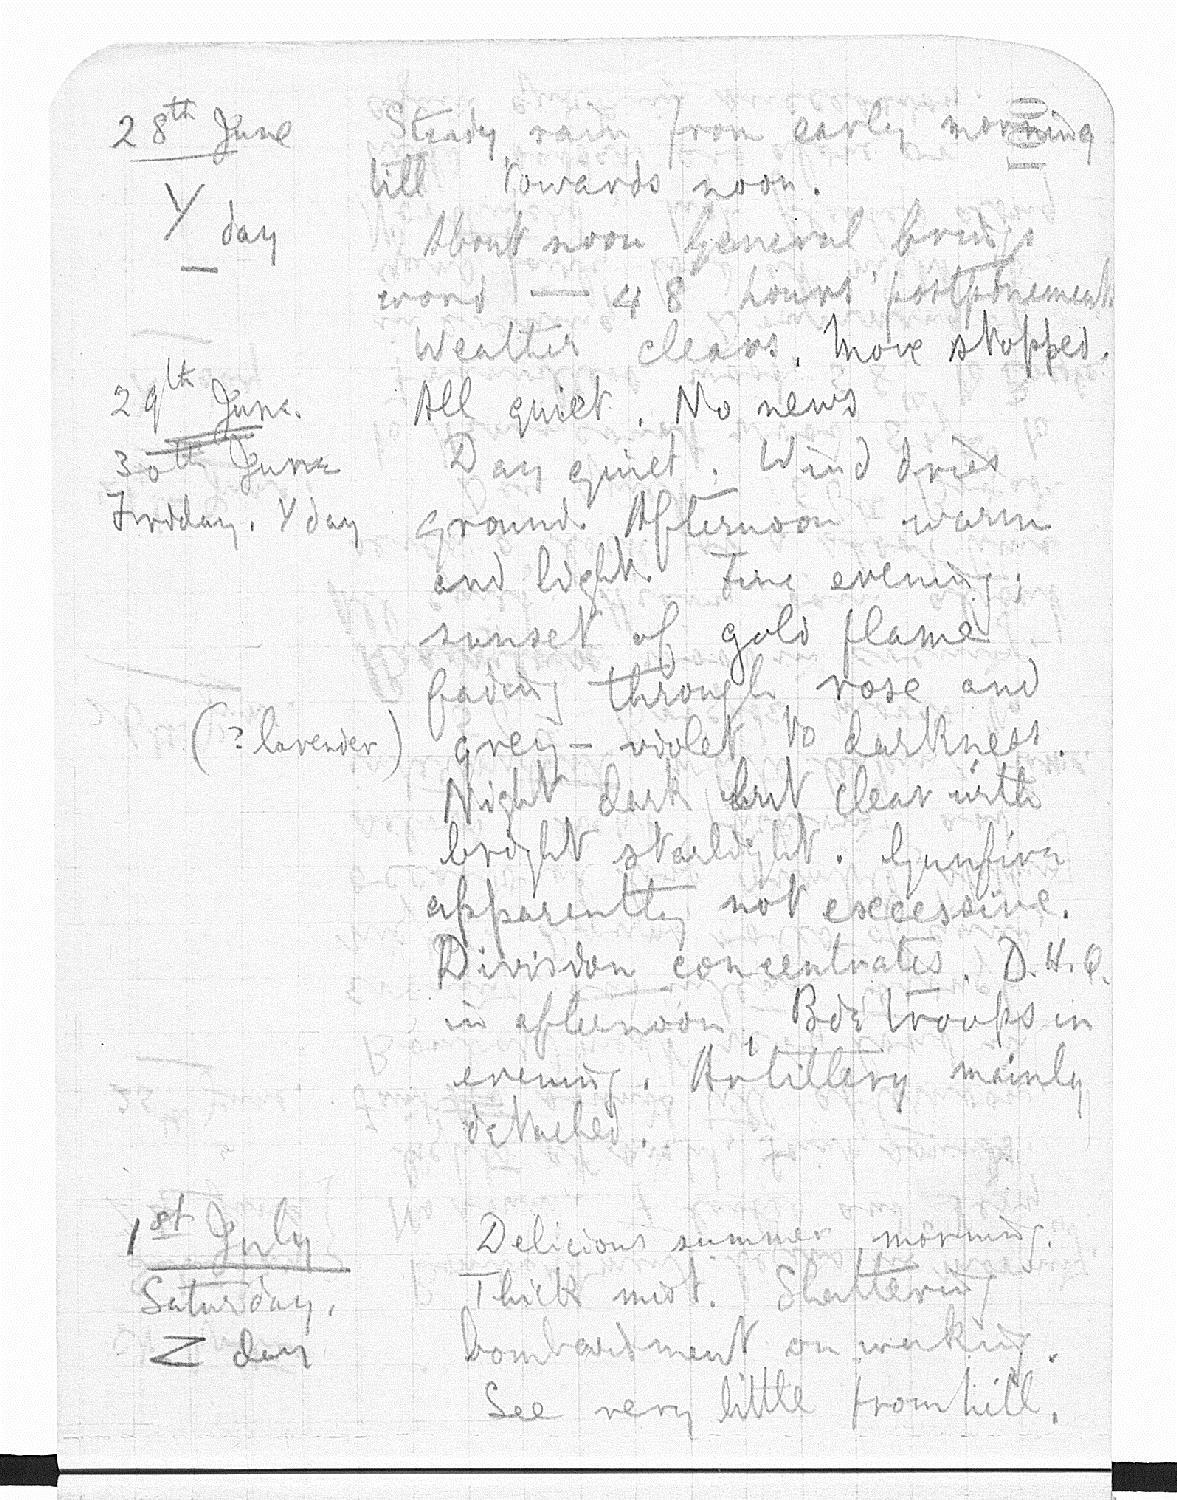 28th June Steady rain from early morning
till towards noon.
Y day About noon General brings
word — 48 hours' postponement.
Weather clears. Move stopped.
29th June. All quiet. No news
30th June Day quiet. Wind dries
Friday. Y day ground. Afternoon - warm
and light. Fine evening;
sunset of gold flame
fading through rose and
(? lavender) grey-violet to darkness.
Night dark but clear with
bright starlight. Gunfire
apparently not excessive.
Division concentrates. D.H.Q.
in afternoon, Bde troops in
evening. Artillery mainly
detached.
1st July Delicious summer morning.
Saturday. Thick mist. Shattering
Z day bombardment on waking.
See very little from hill.